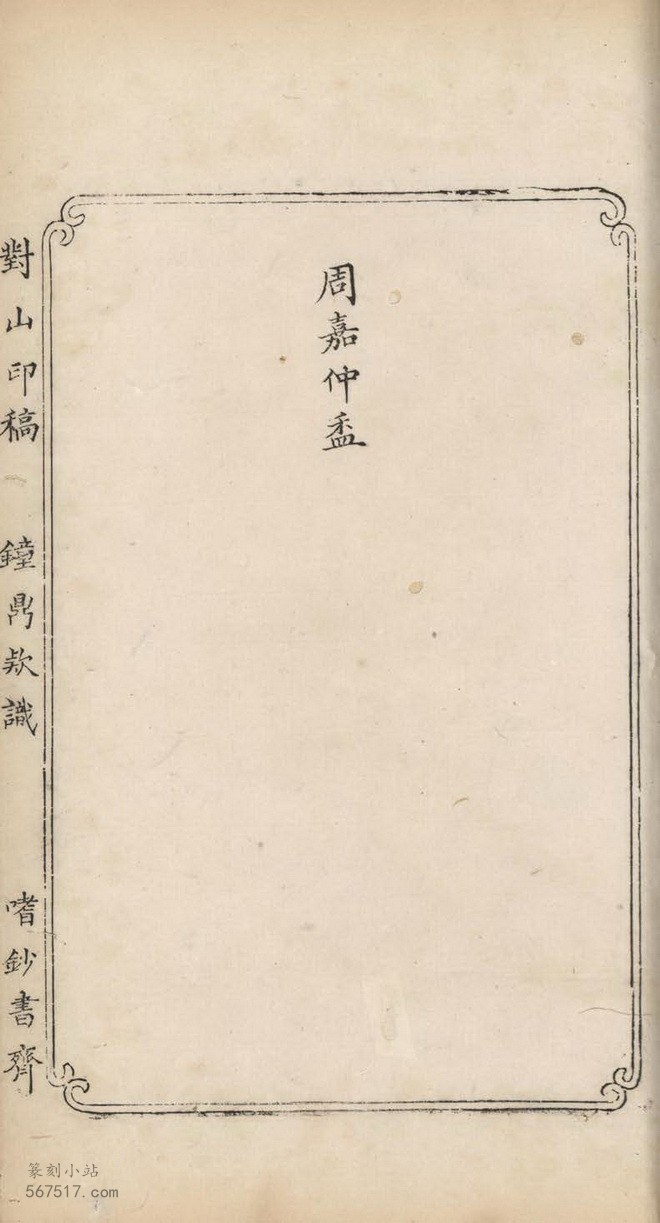 周嘉仲盉
對山印稿 鐘鼎欵識 嗜鈔書齊
篆刻小站
567517.com